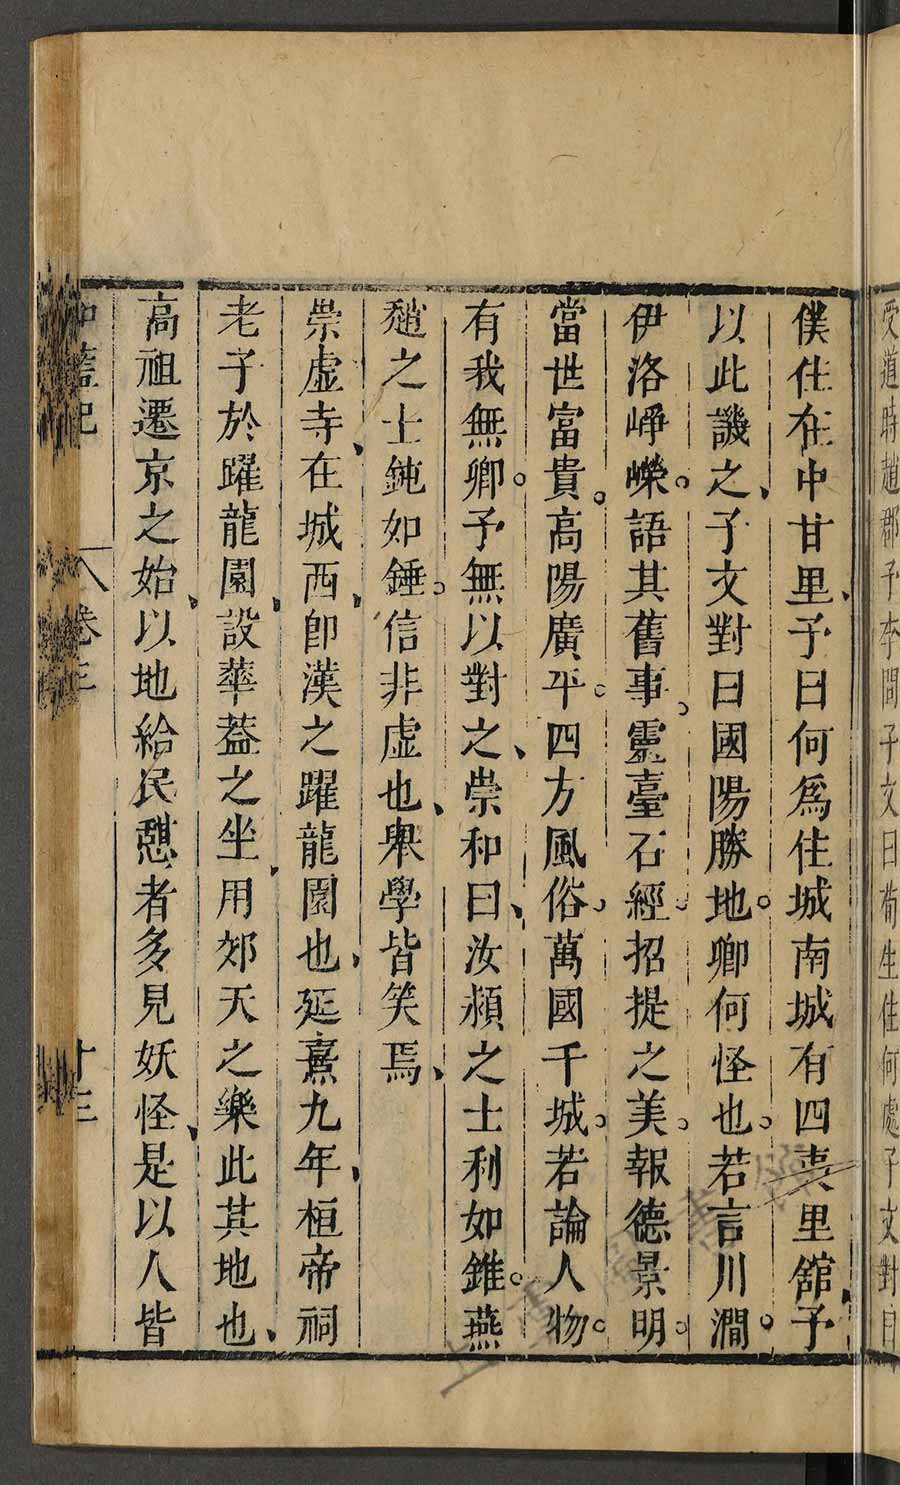 受道時趙郡子李間子文曰荀生住何處子文對曰
僕住在中甘里、子曰何爲住城南城有四夷里舘、子
以此譏之、子文對曰國陽勝地。卿何怪也。若言川澗。
伊洛崢嶸。語其舊事。靈臺石經。招提之美。報德景明。
當世富貴。高陽廣平。四方風俗。萬國千城。若論人物。
有我無卿。予無以對之、崇和曰、汝潁之士利如錐。燕
趙之士鈍如錘。信非虛也、舉學皆笑焉、
崇虛寺、在城西、卽漢之躍龍園也、延熹九年、桓帝祠
老子於躍龍園、設華蓋之坐、用郊天之樂此其地也、
高祖遷京之始、以地給民憇者多見妖怪、是以人皆
伽藍記 卷三 廿三